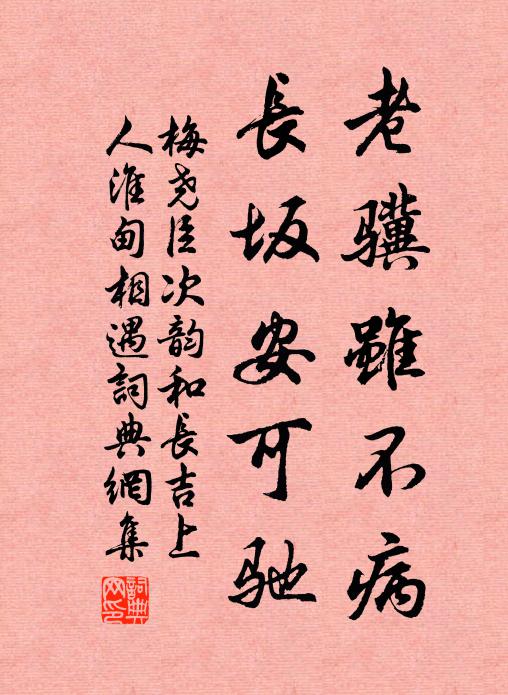 老驥雖不病
長坂安可馳
梅堯臣次韵和長吉上
人淮甸相遇詞典網集
詞典网印